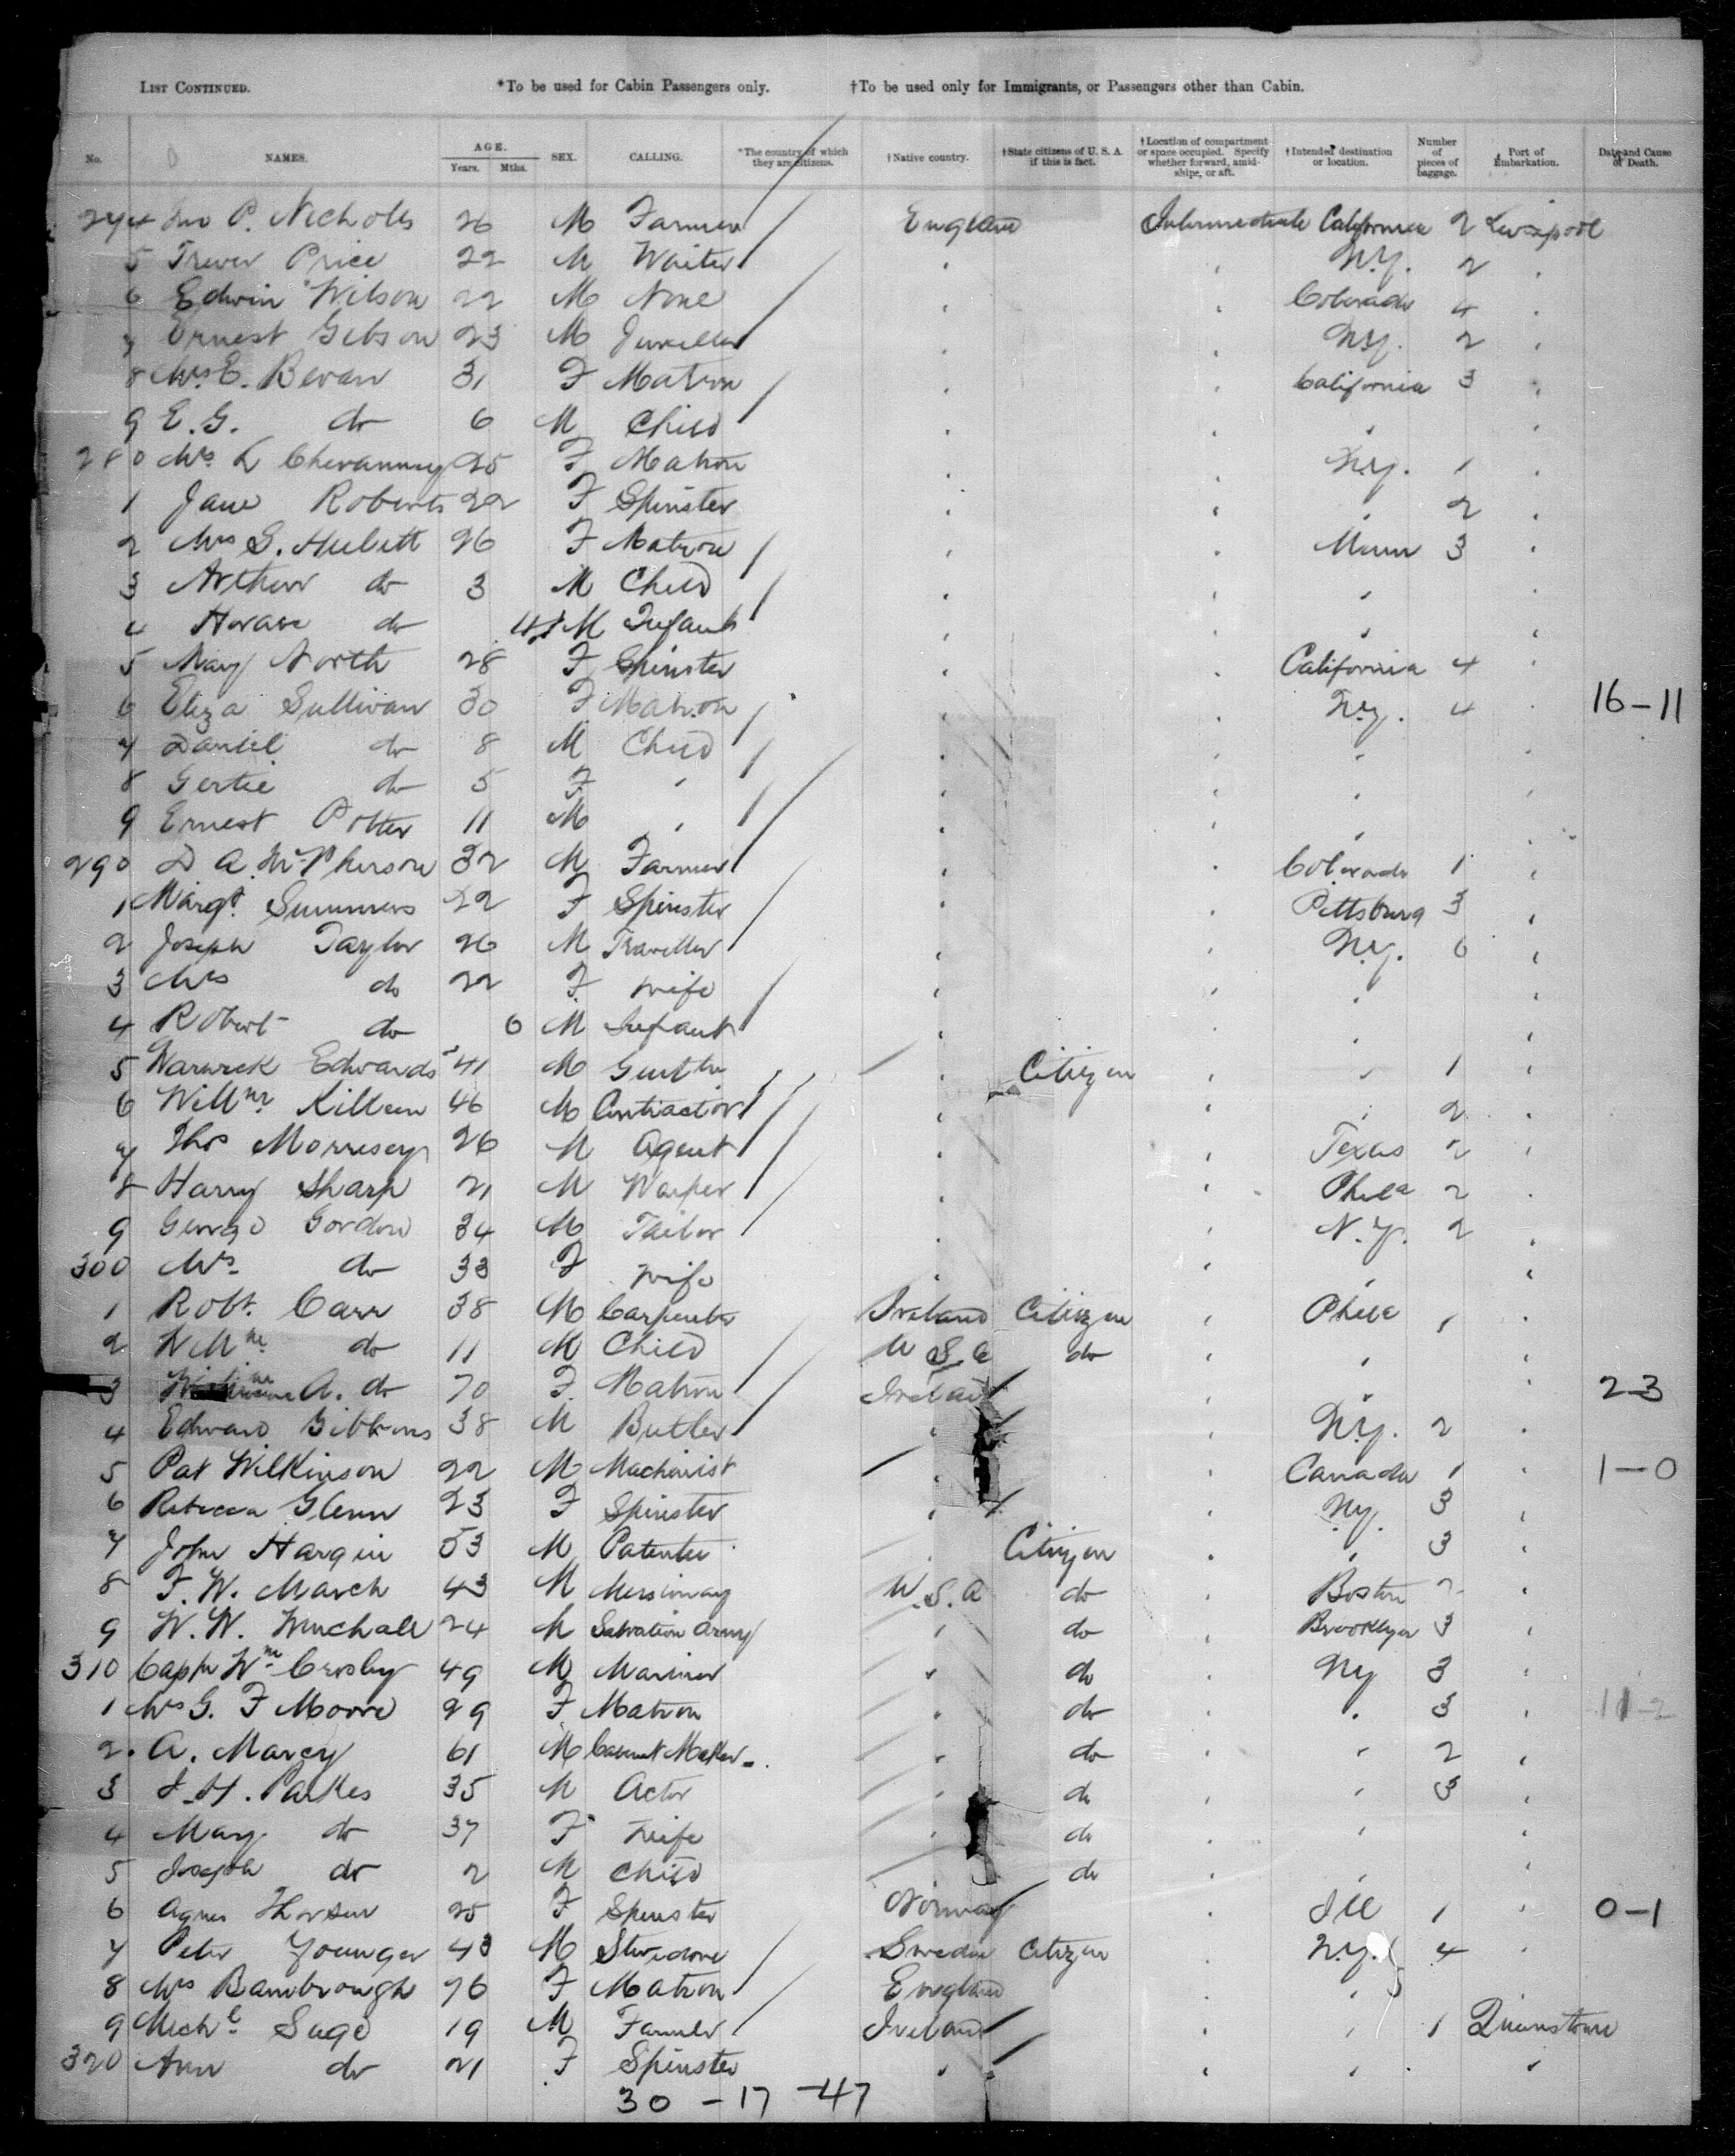 List Continued. *To be used for Cabin Passengers only. †To be used only for Immigrants, or Passengers other than Cabin.
No. NAMES. AGE. Years. Mths. SEX. CALLING. *The country of which they are citizens. †Native country. †State citizens of U. S. A. if this is fact. †Location of compartment or space occupied. Specify whether forward, amidships, or aft. †Intended destination or location. Number of pieces of baggage. Port of Embarkation. Date and Cause of Death.
274 Jno P. Nicholls 26 M Farmer England Intermediate California 2 Liverpool
5 Trevor Price 22 M Waiter " " N.Y. 2 "
6 Edwin Wilson 22 M None " " Colorado 4 "
7 Ernest Gibson 23 M Jeweller " " N.Y. 2 "
8 Mrs E. Bevan 31 F Matron " " California 3 "
9 E.G. do 6 M Child " " " "
280 Mrs L 25 F Matron " " N.Y. 1 "
1 Jane Roberts 22 F Spinster " " " 2 "
2 Mrs S. Hulett 26 F Matron " " Minn 3 "
3 Arthur do 3 M Child " " " "
4 Horace do M Infant " " " "
5 Mary North 28 F Spinster " " California 4 "
6 Eliza Sullivan 30 F Matron " " N.Y. 4 " 16-11
7 Daniel do 8 M Child " " " "
8 Gertie do 5 F " " " " "
9 Ernest Potter 11 M " " " " "
290 D. A. McPherson 32 M Farmer " " Colorado 1 "
1 Margt. Summers 22 F Spinster " " Pittsburg 3 "
2 Joseph Taylor 26 M Traveller " " N.Y. 6 "
3 Mrs do 22 F Wife " " " "
4 Robert do 6 M Infant " " " "
5 Warwick Edwards 41 M Gentln " Citizen " " 1 "
6 Willm Killeen 46 M Contractor " " " 2 "
7 Thos Morrisey 26 M Agent " " Texas 2 "
8 Harry Sharp 21 M Warper " " Phila 2 "
9 George Gordon 34 M Tailor " " N.Y. 2 "
300 Mrs do 33 F Wife " " " "
1 Robt. Carr 38 M Carpenter Ireland Citizen " Phila 1 "
2 Willm do 11 M Child U S A do " " "
3 A. do 70 F. Matron Ireland " " 2-3
4 Edward Gibbons 38 M Butler " " N.Y. 2 "
5 Pat Wilkinson 22 M Machinist " " Canada 1 " 1-0
6 Rebecca Glenn 23 F Spinster " " N.Y. 3 "
7 John Hargin 53 M Patentee " Citizen " " 3 "
8 F. W. March 43 M Missionary U.S.A do " Boston 2 "
9 W. W. Winchell 24 M Salvation Army " do " Brooklyn 3 "
310 Captn Wm Crosby 49 M Mariner " do " N.Y 3 "
1 Mrs G. F Moore 29 F Matron " do " " 3 " 11-2
2 A. Marcy 61 M Cabinet Maker " do " " 2 "
3 J. H. Parkes 35 M Actor " do " " 3 "
4 Mary do 37 F Wife " do " " "
5 Joseph do 2 M Child " do " " "
6 Agnes Thorsen 25 F Spinster Norway " Ill 1 " 0-1
7 Peter Younger 43 M Stevedore Sweden Citizen " N.Y. 4 "
8 Mrs Bambrough 76 F Matron England " "
9 Michl Sage 19 M Farmer Ireland " " 1 Queenstown
320 Ann do 21 F Spinster " " " "
30 - 17 - 47